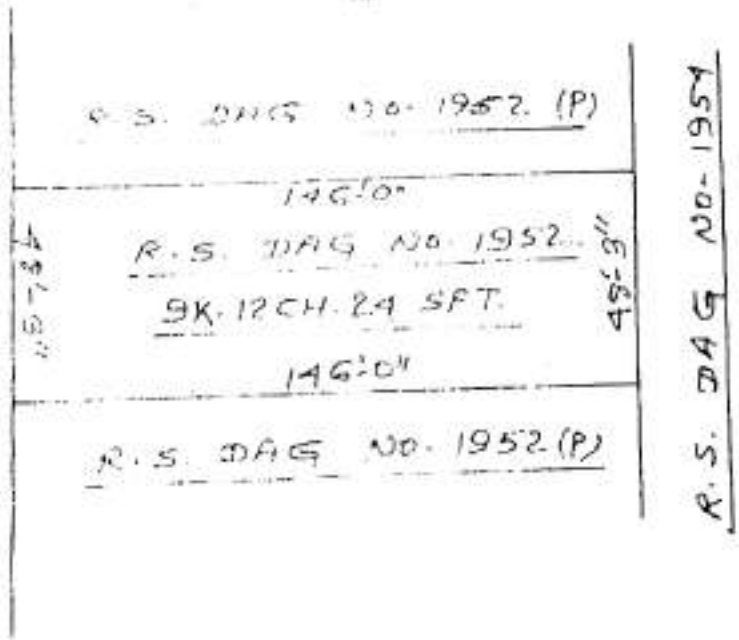 R.S. DAG NO. 1952. (P)
146'-0"
R.S. DAG NO. 1952.
9K. 12 CH. 24 SFT.
146'-0"
R.S. DAG NO. 1952 (P)
48'-3"
R.S. DAG NO- 1954